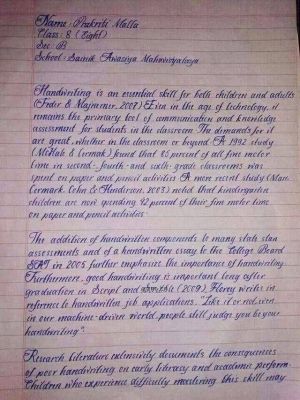 Name : Prakriti Malla
Class : 8 (Eight)
Sec : B
School : Sainik Awasiya Mahavidyalaya
Handwriting is an essential skill for both children and adults
(Feder & Majnemer, 2007) Even in the age of technology, it
remains the primary tool of communication and knowledge
assessment for students in the classroom. The demands for it
are great, whether in the classroom or beyond. A 1992 study
(McHale & Cermak) found that 85 percent of all fine motor
time in second- fourth- and sixth- grade classrooms was
spent on paper and pencil activities. A more recent study (Marr,
Cermak, Cohn & Henderson, 2003) noted that kindergarten
children are now spending 42 percent of their fine motor time
on paper and pencil activities
The addition of handwritten components to many state stan
assessments and of a handwritten essay to the College Board
SAT in 2005 further emphasize the importance of handwriting.
Furthermore, good handwriting is important long after
graduation in Script and (2009), Florey writes in
reference to handwritten job applications. "Like it or not, even
in our machine-driven world, people still judge you by your
handwriting".
Research literature extensively documents the consequences
of poor handwriting on early literacy and academic perform-
Children who experience difficulty mastering this skill may